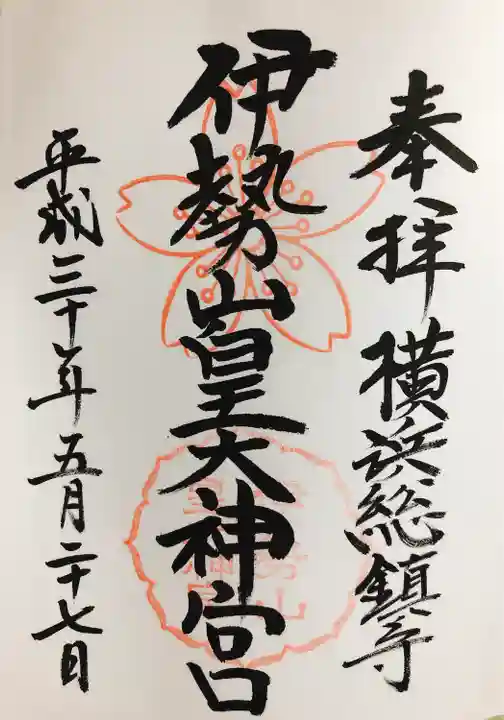 奉拝 横浜総鎮守
伊勢山皇大神宮
平成三十年五月二十七日